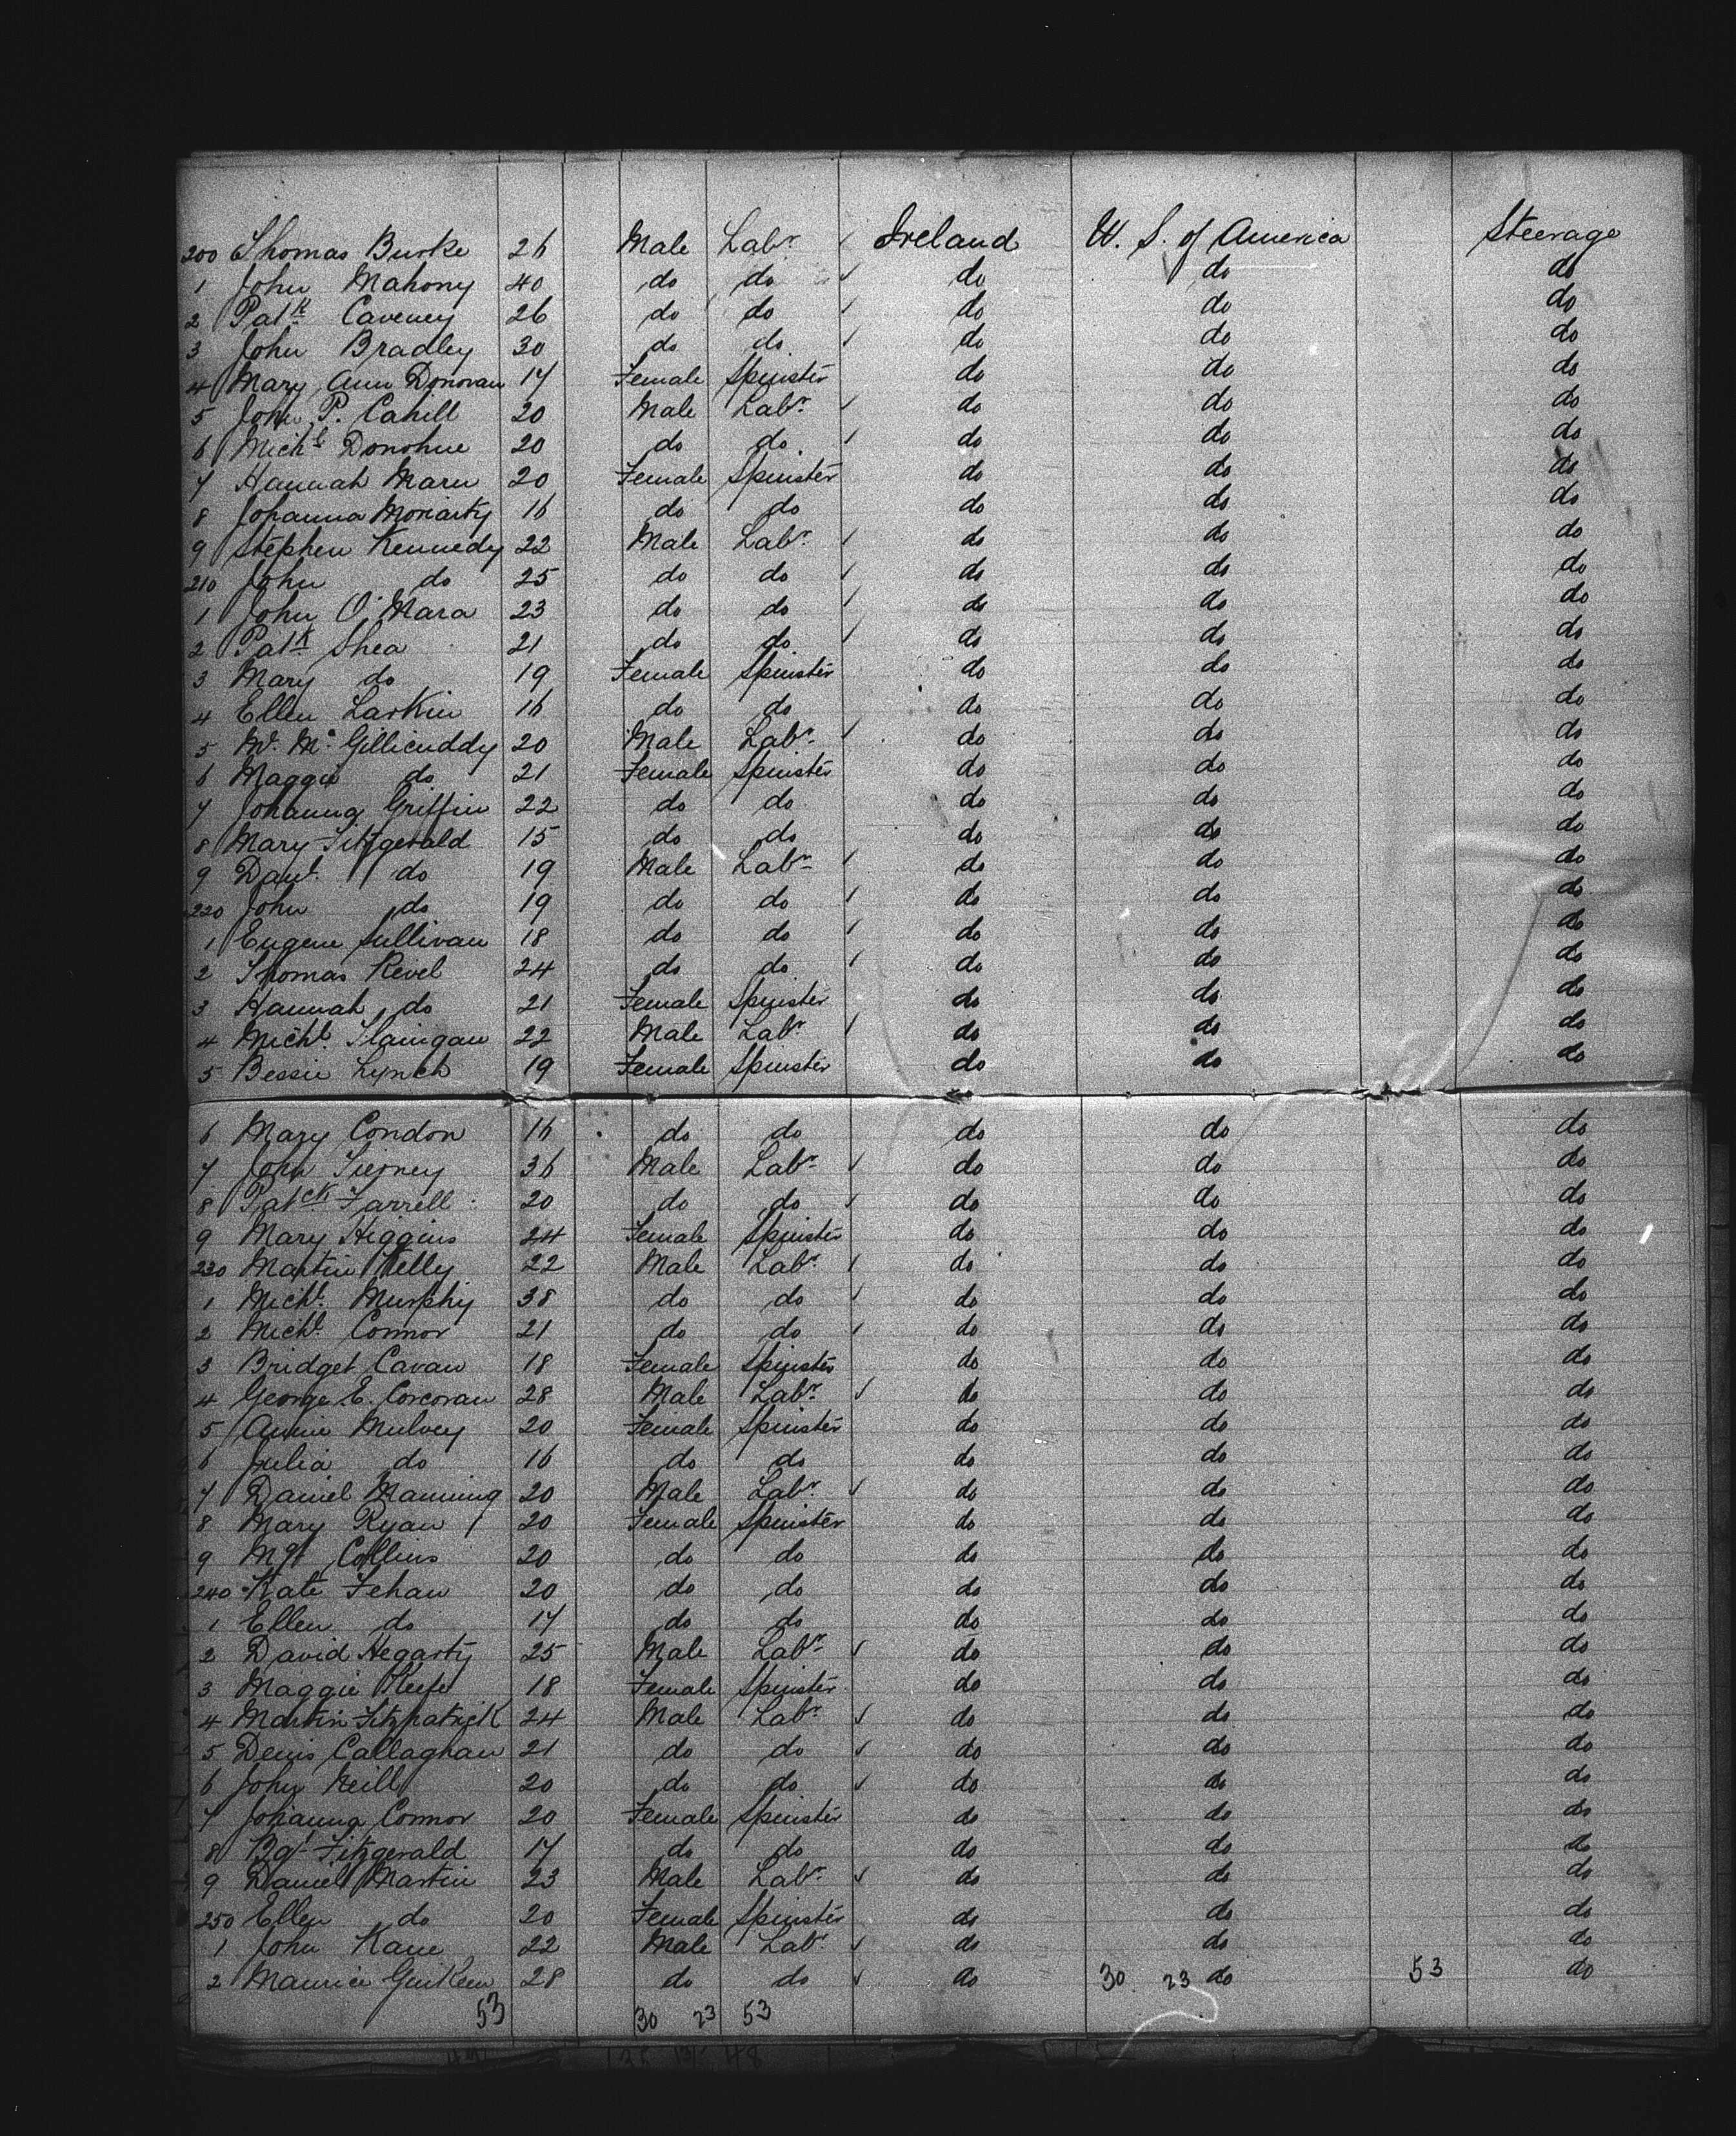 200 Thomas Burke 26 Male Labr Ireland U. S. of America Steerage
1 John Mahony 40 do do do do do
2 Patk Caveney 26 do do do do do
3 John Bradley 30 do do do do do
4 Mary Ann Donovan 17 Female Spinster do do do
5 John P. Cahill 20 Male Labr do do do
6 Michl Donohue 20 do do do do do
7 Hannah 20 Female Spinster do do do
8 Johanna Moriarty 16 do do do do do
9 Stephen Kennedy 22 Male Labr do do do
210 John do 25 do do do do do
1 John O'Mara 23 do do do do do
2 Patk Shea 21 do do do do do
3 Mary do 19 Female Spinster do do do
4 Ellen Larkin 16 do do do do do
5 McGillicuddy 20 Male Labr do do do
6 Maggie do 21 Female Spinster do do do
7 Johanna Griffin 22 do do do do do
8 Mary Fitzgerald 15 do do do do do
9 Danl do 19 Male Labr do do do
220 John do 19 do do do do do
1 Eugene Sullivan 18 do do do do do
2 Thomas Revel 24 do do do do do
3 Hannah do 21 Female Spinster do do do
4 Michl Flanigan 22 Male Labr do do do
5 Bessie Lynch 19 Female Spinster do do do
6 Mary Condon 16 do do do do do
7 John Tierney 36 Male Labr do do do
8 Patck Farrell 20 do do do do do
9 Mary Higgins 24 Female Spinster do do do
230 Martin Kelly 22 Male Labr do do do
1 Michl Murphy 38 do do do do do
2 Michl Connor 21 do do do do do
3 Bridget Cavan 18 Female Spinster do do do
4 George E. Corcoran 28 Male Labr do do do
5 Annie Mulvey 20 Female Spinster do do do
6 Julia do 16 do do do do do
7 Daniel Manning 20 Male Labr do do do
8 Mary Ryan 20 Female Spinster do do do
9 Mgt Collins 20 do do do do do
240 Kate Fehan 20 do do do do do
1 Ellen do 17 do do do do do
2 David Hegarty 25 Male Labr do do do
3 Maggie Keefe 18 Female Spinster do do do
4 Martin Fitzpatrick 24 Male Labr do do do
5 Denis Callaghan 21 do do do do do
6 John Neill 20 do do do do do
7 Johanna Connor 20 Female Spinster do do do
8 Bgt Fitzgerald 17 do do do do do
9 Daniel Martin 23 Male Labr do do do
250 Ellen do 20 Female Spinster do do do
1 John Kane 22 Male Labr do do do
2 Maurice 28 do do do 30 23 do 53 do
53 30 23 53